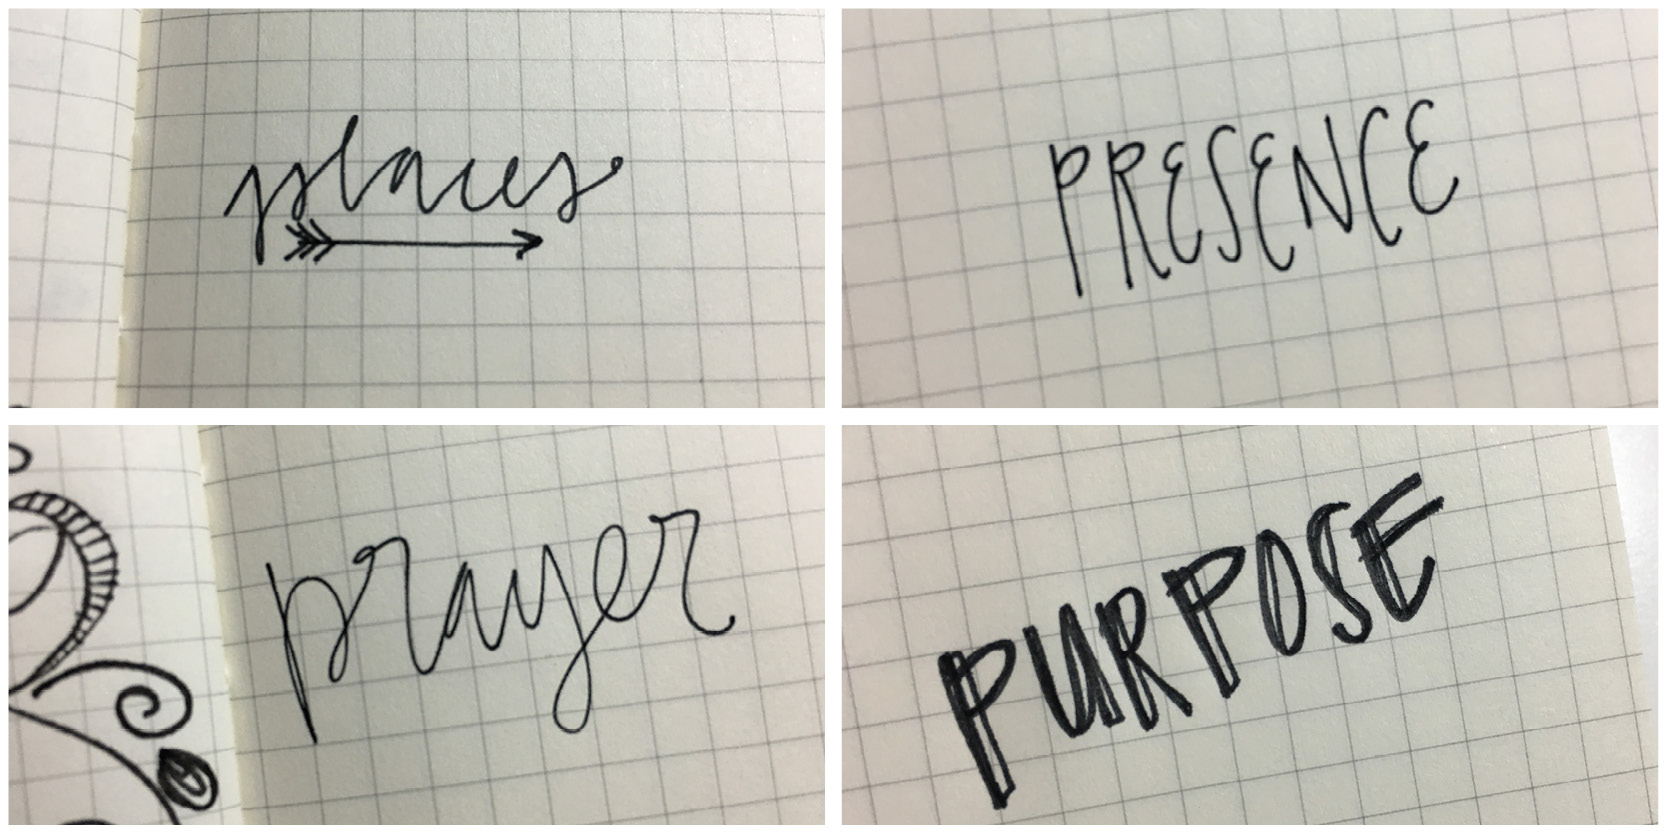 places
PRESENCE
prayer
PURPOSE